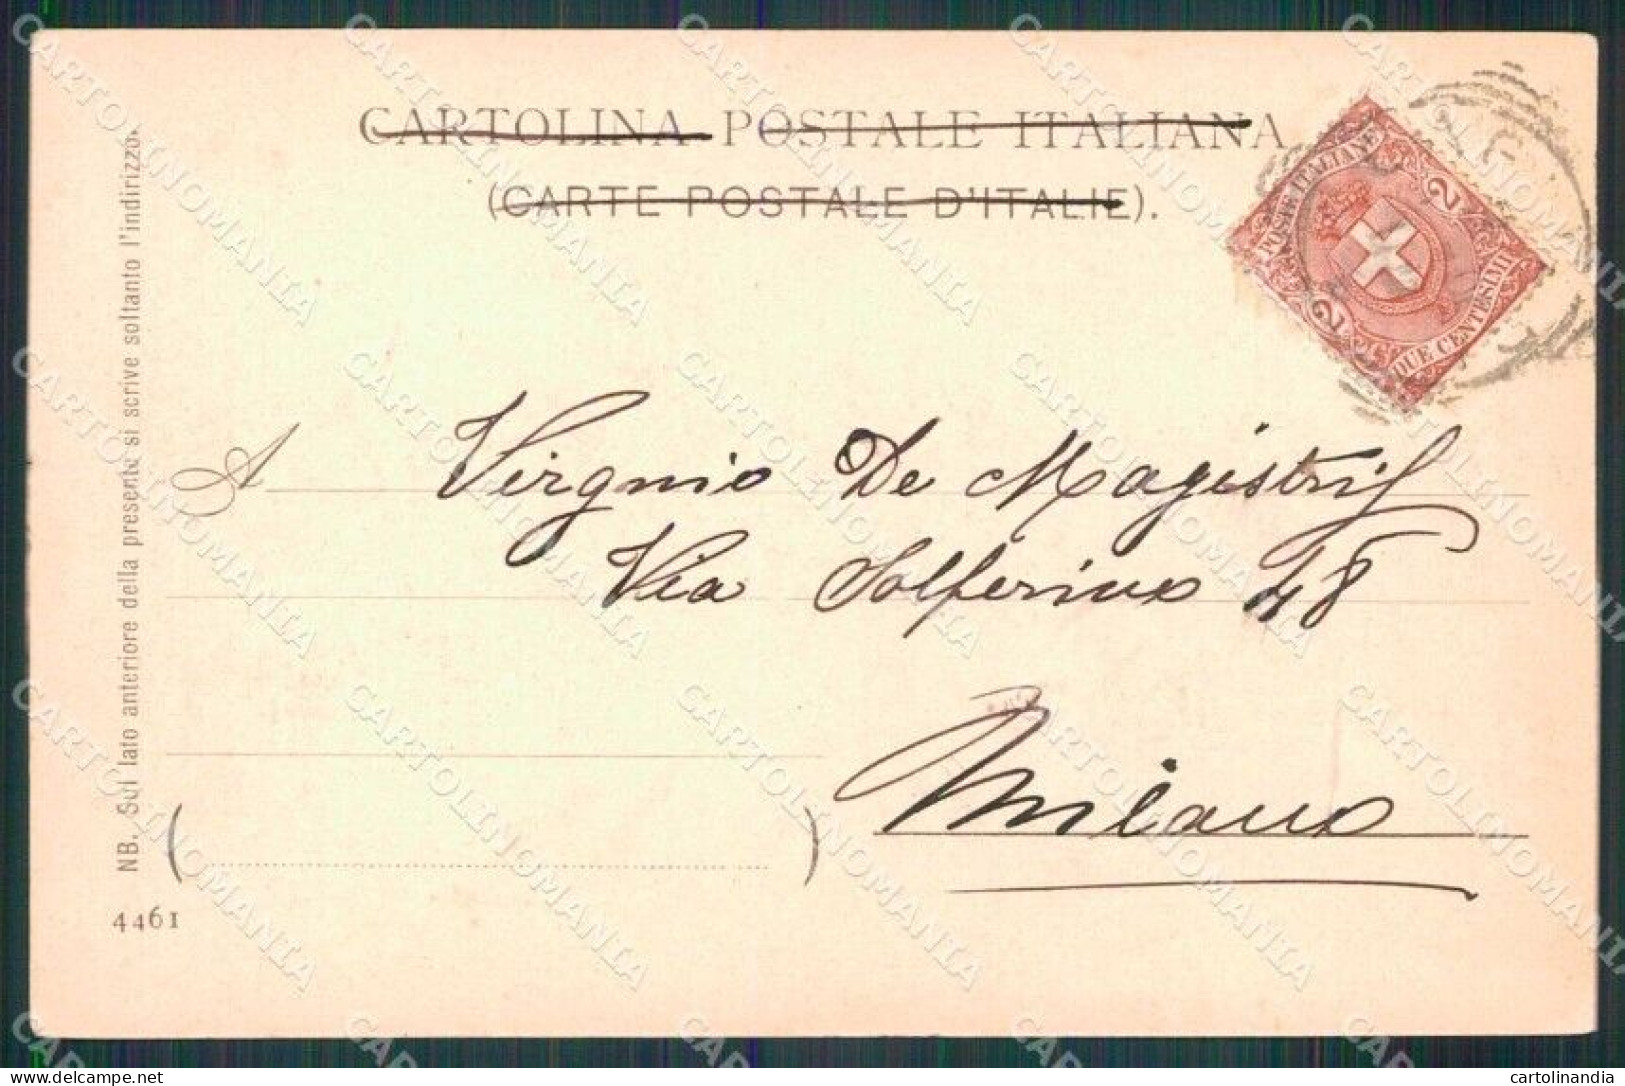 CARTOLINA POSTALE ITALIANA
(CARTE POSTALE D'ITALIE).
POSTE ITALIANE
2
2
DUE CENTESIMI
NB. Sul lato anteriore della presente si scrive soltanto l'indirizzo.
A Virginio De Magistris
Via Solferino 48
Milano
4461
CARTOLINOMANIA
delcampe.net
cartolinandia